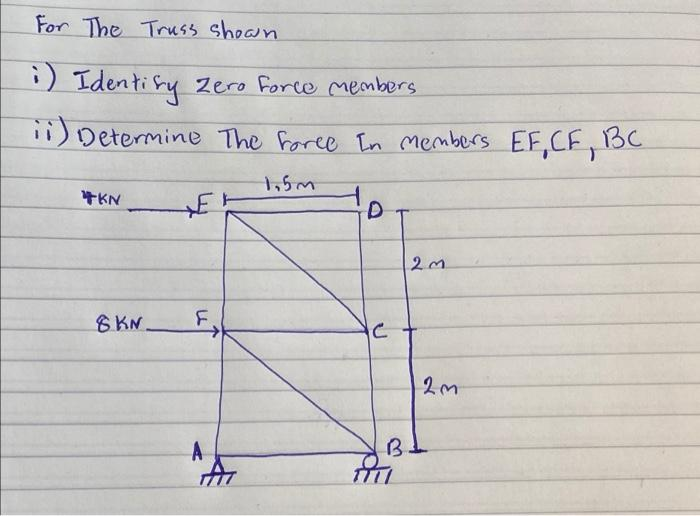 For The Truss shown
i) Identify Zero Force members
ii) Determine The Force In members EF, CF, BC
1,5m
4KN E D
2m
8KN F C
2m
A B